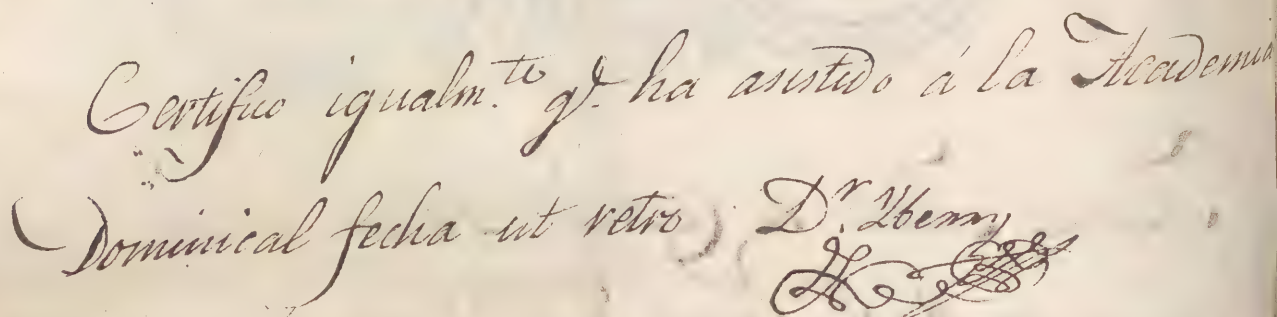 Certifico igualm.te q.e ha asistido á la Academia
Dominical fecha ut retro D.r